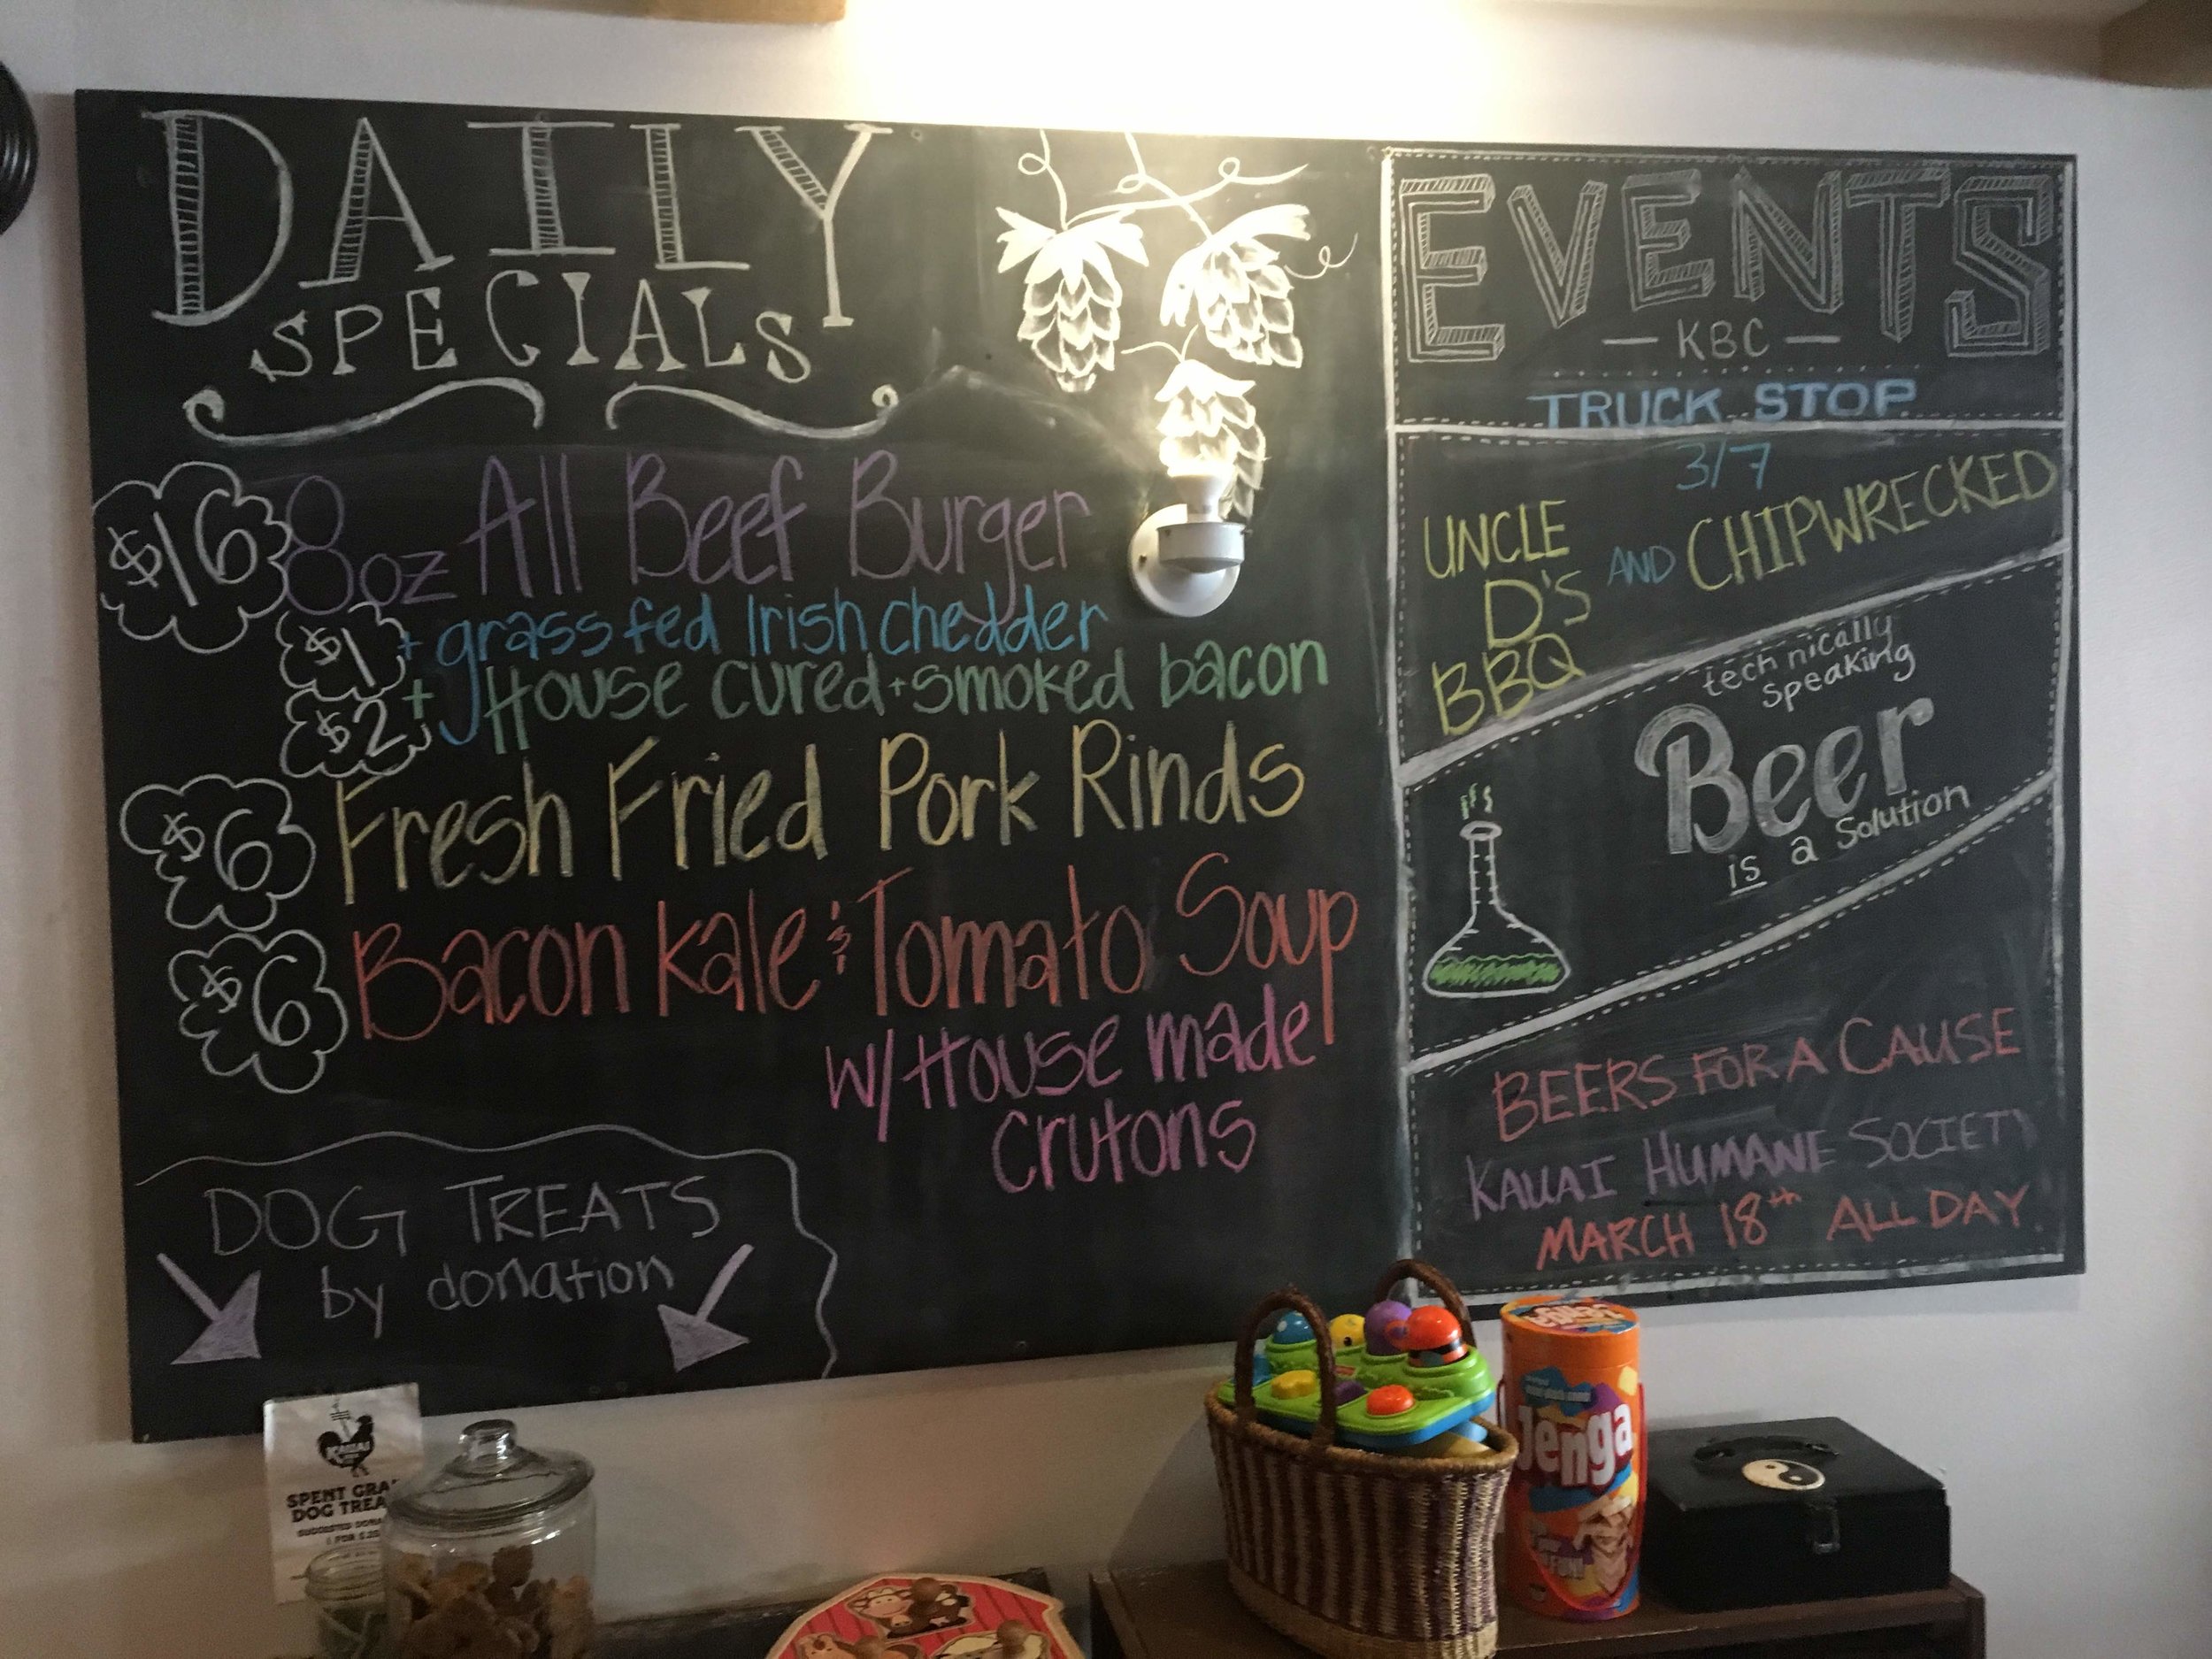 DAILY
SPECIALS
$16 8oz All Beef Burger
$1 + grass fed Irish chedder
$2 + House cured + smoked bacon
$6 Fresh Fried Pork Rinds
$6 Bacon Kale & Tomato Soup
w/ House made
crutons
DOG TREATS
by donation
EVENTS
— KBC —
TRUCK STOP
3/7
UNCLE
D'S
BBQ
AND CHIPWRECKED
technically
speaking
Beer
is a solution
BEERS FOR A CAUSE
KAUAI HUMANE SOCIETY
MARCH 18th ALL DAY
KAUAI
SPENT
DOG
SUGGESTED
1 FOR
Jenga